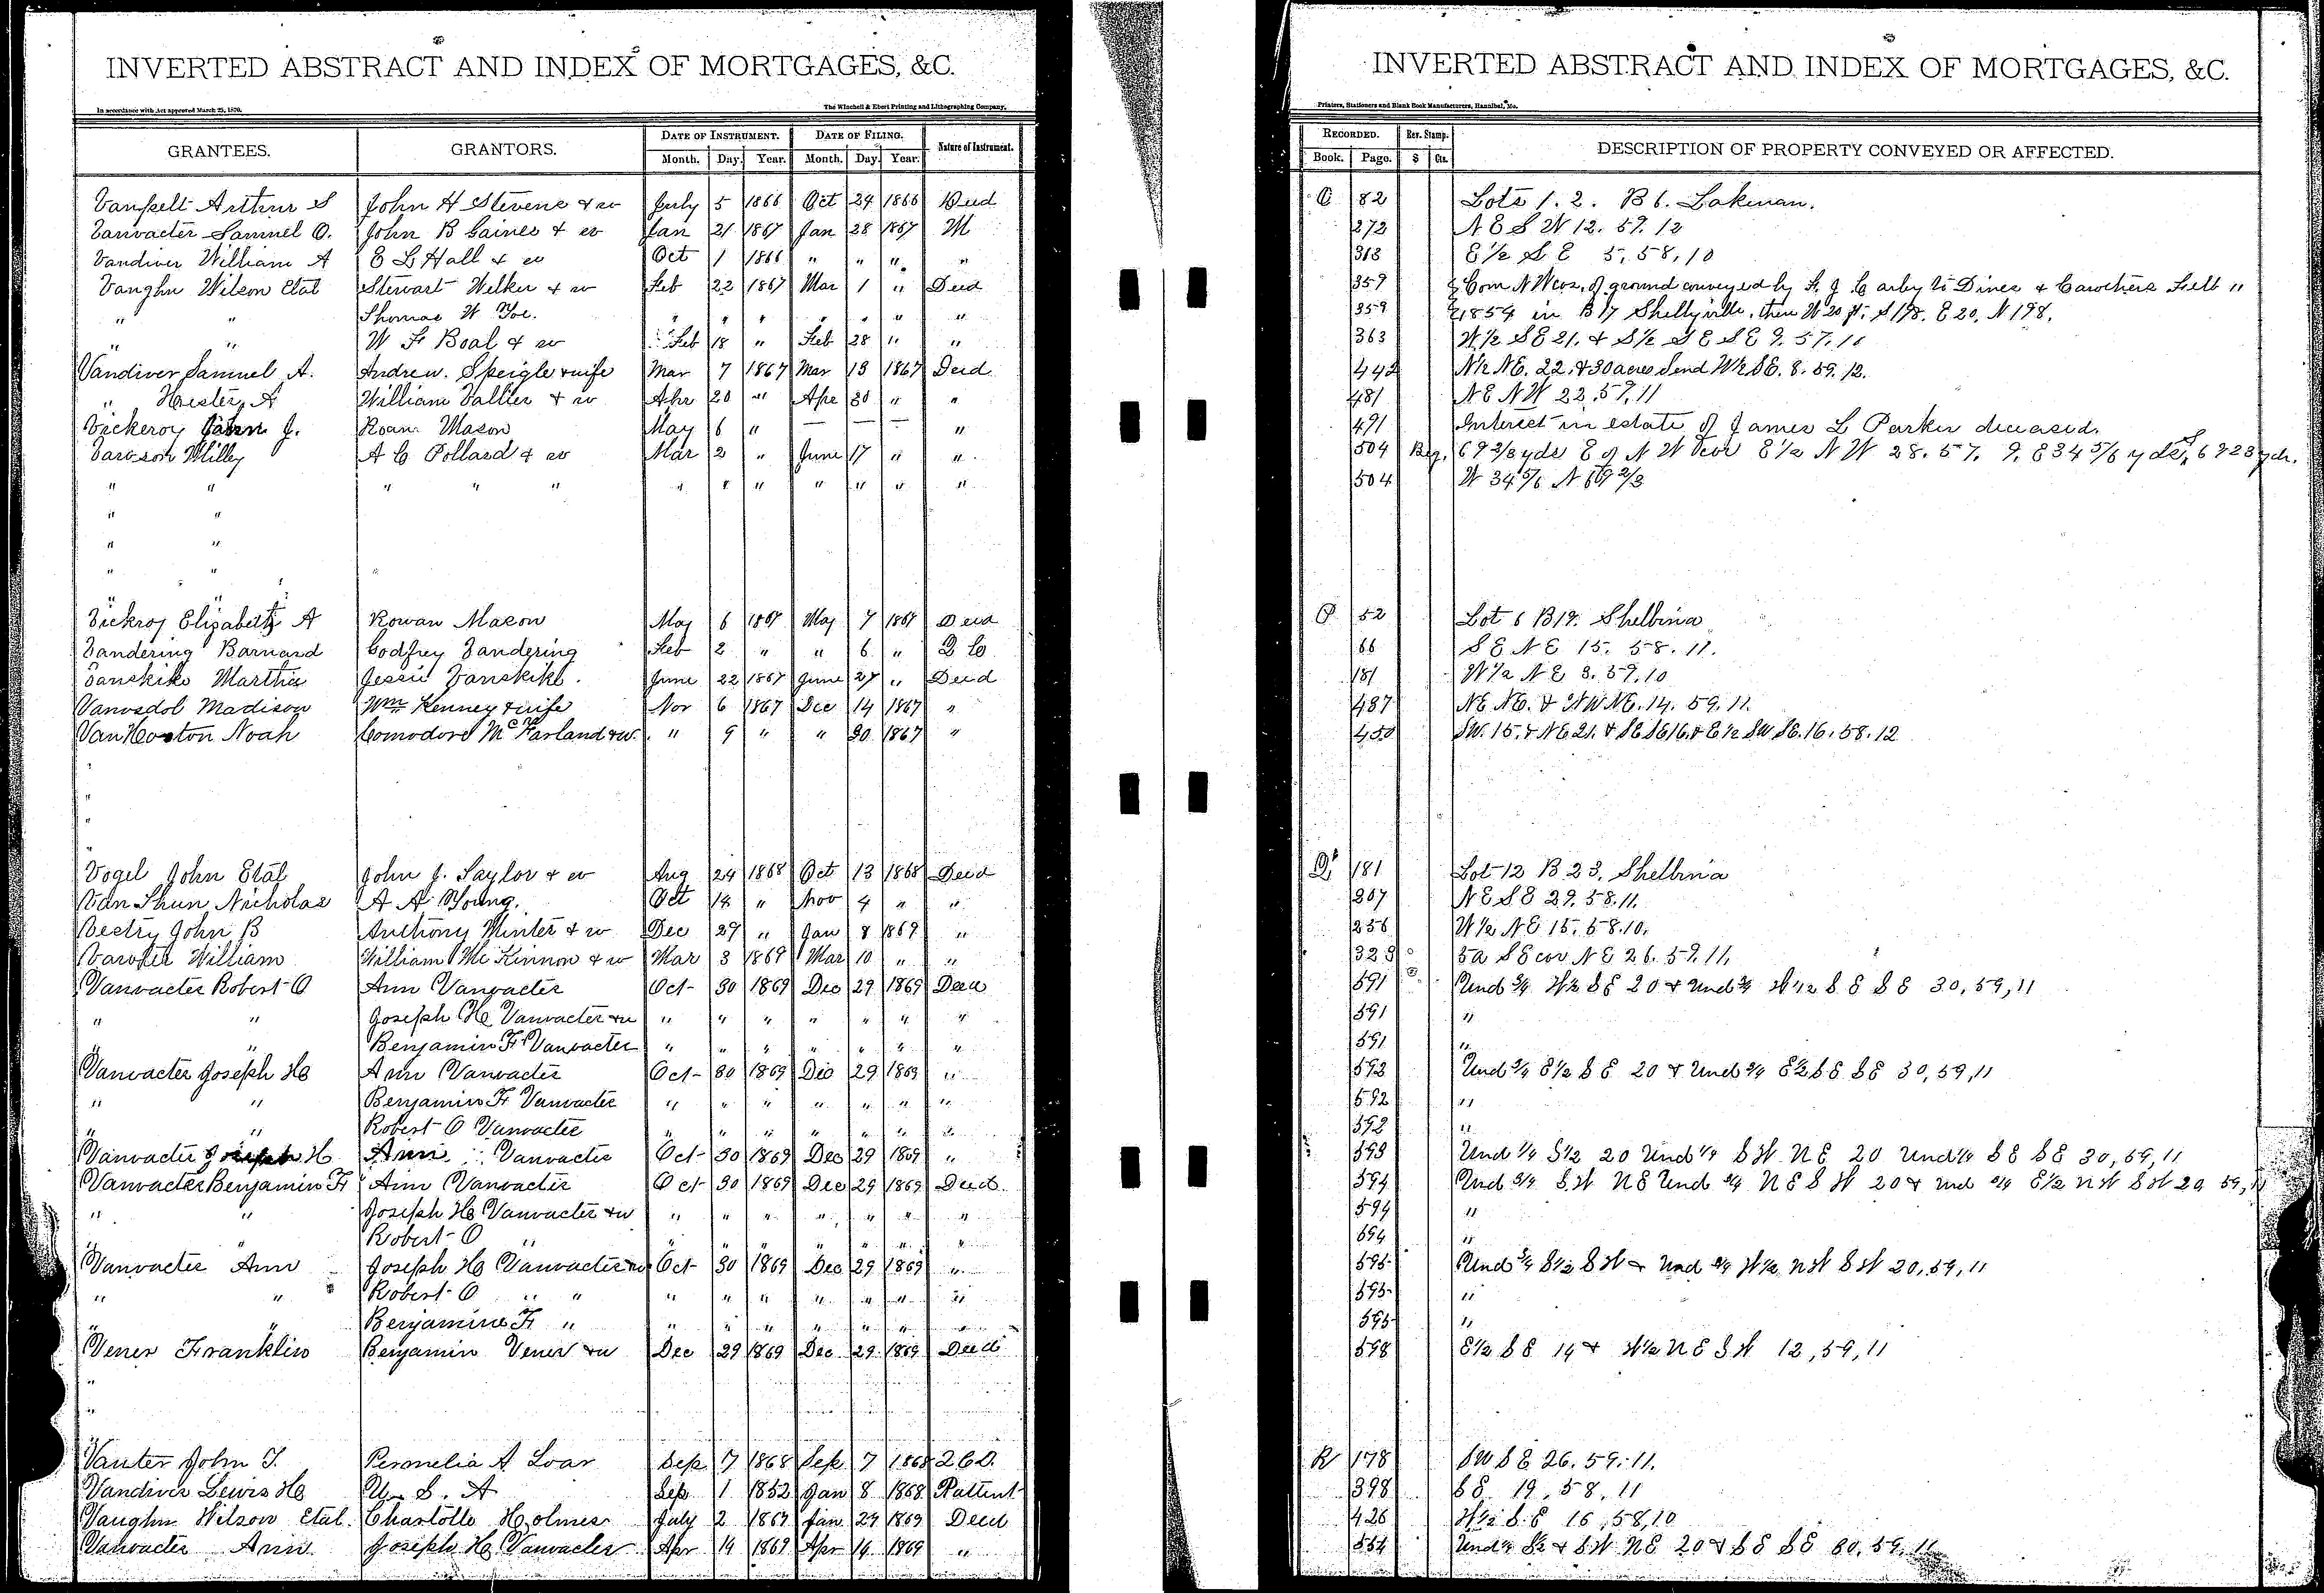 INVERTED ABSTRACT AND INDEX OF MORTGAGES, &C.
In accordance with Act approved March 25, 1870.
The Winchell & Ebert Printing and Lithographing Company,
GRANTEES. GRANTORS. DATE OF INSTRUMENT. DATE OF FILING. Nature of Instrument.
Month. Day. Year. Month. Day. Year.
Vanpelt Arthur S John H Stevens & w July 5 1866 Oct 24 1866 Deed
Vanvacter Samuel O. John B Gaines & w Jan 21 1867 Jan 28 1867 M
Vandiver William A E L Hall & w Oct 1 1866 " " " "
Vaughn Wilson Etal Stewart Welker & w Feb 22 1867 Mar 1 " Deed
" " Thomas W " " " " " " "
" " W F Boal & w Feb 18 " Feb 28 " "
Vandiver Samuel A. Andrew. Speigle & wife Mar 7 1867 Mar 13 1867 Deed
" Hester A William Vallier & w Apr 20 " Apr 30 " "
Vickeroy John J. Roan Mason May 6 " — — — "
Milly A C Pollard & w Mar 2 " June 17 " "
" " " " " " " " " " " "
" "
" "
" "
" "
Vickroy Elizabeth A Rowan Mason May 6 1867 May 7 1867 Deed
Vandering Barnard Godfrey Vandering Feb 2 " " 6 " Q C
Vanskike Martha Jessie Vanskike. June 22 1867 June 27 " Deed
Vanosdol Madison Wm Kenney & wife Nov 6 1867 Dec 14 1867 "
VanHooston Noah Comodore McFarland & w. " 9 " " 30 1867 "
"
"
"
"
Vogel John Etal John J. Taylor & w Aug 24 1868 Oct 13 1868 Deed
Van Nicholas A A Young. Oct 14 " Nov 4 " "
Vestry John B Anthony Minter & w Dec 29 " Jan 8 1869 "
William William McKinnon & w Mar 3 1869 Mar 10 " "
Vanvacter Robert O Ann Vanvacter Oct 30 1869 Dec 29 1869 Deed
" " Joseph H Vanvacter & w " " " " " " "
" " Benjamin F Vanvacter " " " " " " "
Vanvacter Joseph H Ann Vanvacter Oct 30 1869 Dec 29 1869 "
" " Benjamin F Vanvacter " " " " " " "
" " Robert O Vanvacter " " " " " " "
Vanvacter Joseph H Ann Vanvacter Oct 30 1869 Dec 29 1869 "
Vanvacter Benjamin F Ann Vanvacter Oct 30 1869 Dec 29 1869 Deed
" " Joseph H Vanvacter & w " " " " " " "
" " Robert O " " " " " " " "
Vanvacter Ann Joseph H Vanvacter & w Oct 30 1869 Dec 29 1869 "
" " Robert O " " " " " " " " "
" " Benjamine F " " " " " " " "
Vener Franklin Benjamin Vener & w Dec 29 1869 Dec 29 1869 Deed
"
"
"
Vanter John T. Permelia A Loar Sep 7 1868 Sep 7 1868 Q C D.
Vandiver Lewis H U. S. A Sep 1 1852 Jan 8 1868 Pattent
Vaughn Wilson Etal. Charlotte Holmes July 2 1867 Jan 29 1869 Deed
Vanvacter Ann Joseph H Vanvacter Apr 14 1869 Apr 14 1869 "
INVERTED ABSTRACT AND INDEX OF MORTGAGES, &C.
Printers, Stationers and Blank Book Manufacturers, Hannibal, Mo.
RECORDED. Rev. Stamp. DESCRIPTION OF PROPERTY CONVEYED OR AFFECTED.
Book. Page. $ Cts.
O 82 Lots 1. 2. B 6. Lakenan.
272 N E S W 12. 59. 12
313 E 1/2 S E 5, 58, 10
359 Com N W cor, of ground conveyed by F. J. C arby to Dines & Carothers Feb "
359 1859 in B 17 Shelbyville, then W 20 ft. S 198. E 20. N 198.
363 W 1/2 S E 21. & S 1/2 S E S E 9. 57. 11
442 N 1/2 NE. 22. & 30 acres S end W 1/2 SE. 8. 59. 12.
481 N E N W 22. 59. 11
491 Interest in estate of James L Parker deceased.
504 Beg. 69 2/3 yds E of N W cor E 1/2 N W 28. 57. 9. E 34 5/6 yds S 69 2 3 yds.
504 W 34 5/6 N 69 2/3
P 52 Lot 6 B 19. Shelbina
66 S E N E 15. 58. 11.
181 W 1/2 N E 3. 59. 10
487 NE NE. & NW NE. 14. 59. 11.
450 SW. 15. & NE 21. & SE SE 16. & E 1/2 SW SE. 16. 58. 12
Q 181 Lot 12 B 23. Shelbina
207 N E S E 29. 58. 11.
256 W 1/2 N E 15. 58. 10.
323 5a S E cor N E 26. 59. 11.
591 Und 3/4 W 1/2 S E 20 & Und 3/4 W 1/2 S E S E 30, 59, 11
591 "
591 "
592 Und 3/4 E 1/2 S E 20 & Und 3/4 E 1/2 S E S E 30, 59, 11
592 "
592 "
593 Und 1/4 S 1/2 20 Und 1/4 S W N E 20 Und 1/4 S E S E 30, 59, 11
594 Und 3/4 S W N E Und 3/4 N E S W 20 & Und 3/4 E 1/2 N W S W 20 59, 11
594 "
594 "
595 Und 3/4 S 1/2 S W & Und 3/4 W 1/2 N W S W 20, 59, 11
595 "
595 "
598 E 1/2 S E 14 & W 1/2 N E S W 12, 59, 11
R 178 S W S E 26. 59. 11.
398 S E 19, 58, 11
426 W 1/2 S E 16, 58, 10
554 Und 1/4 S 1/2 & S W N E 20 & S E S E 30, 59, 11